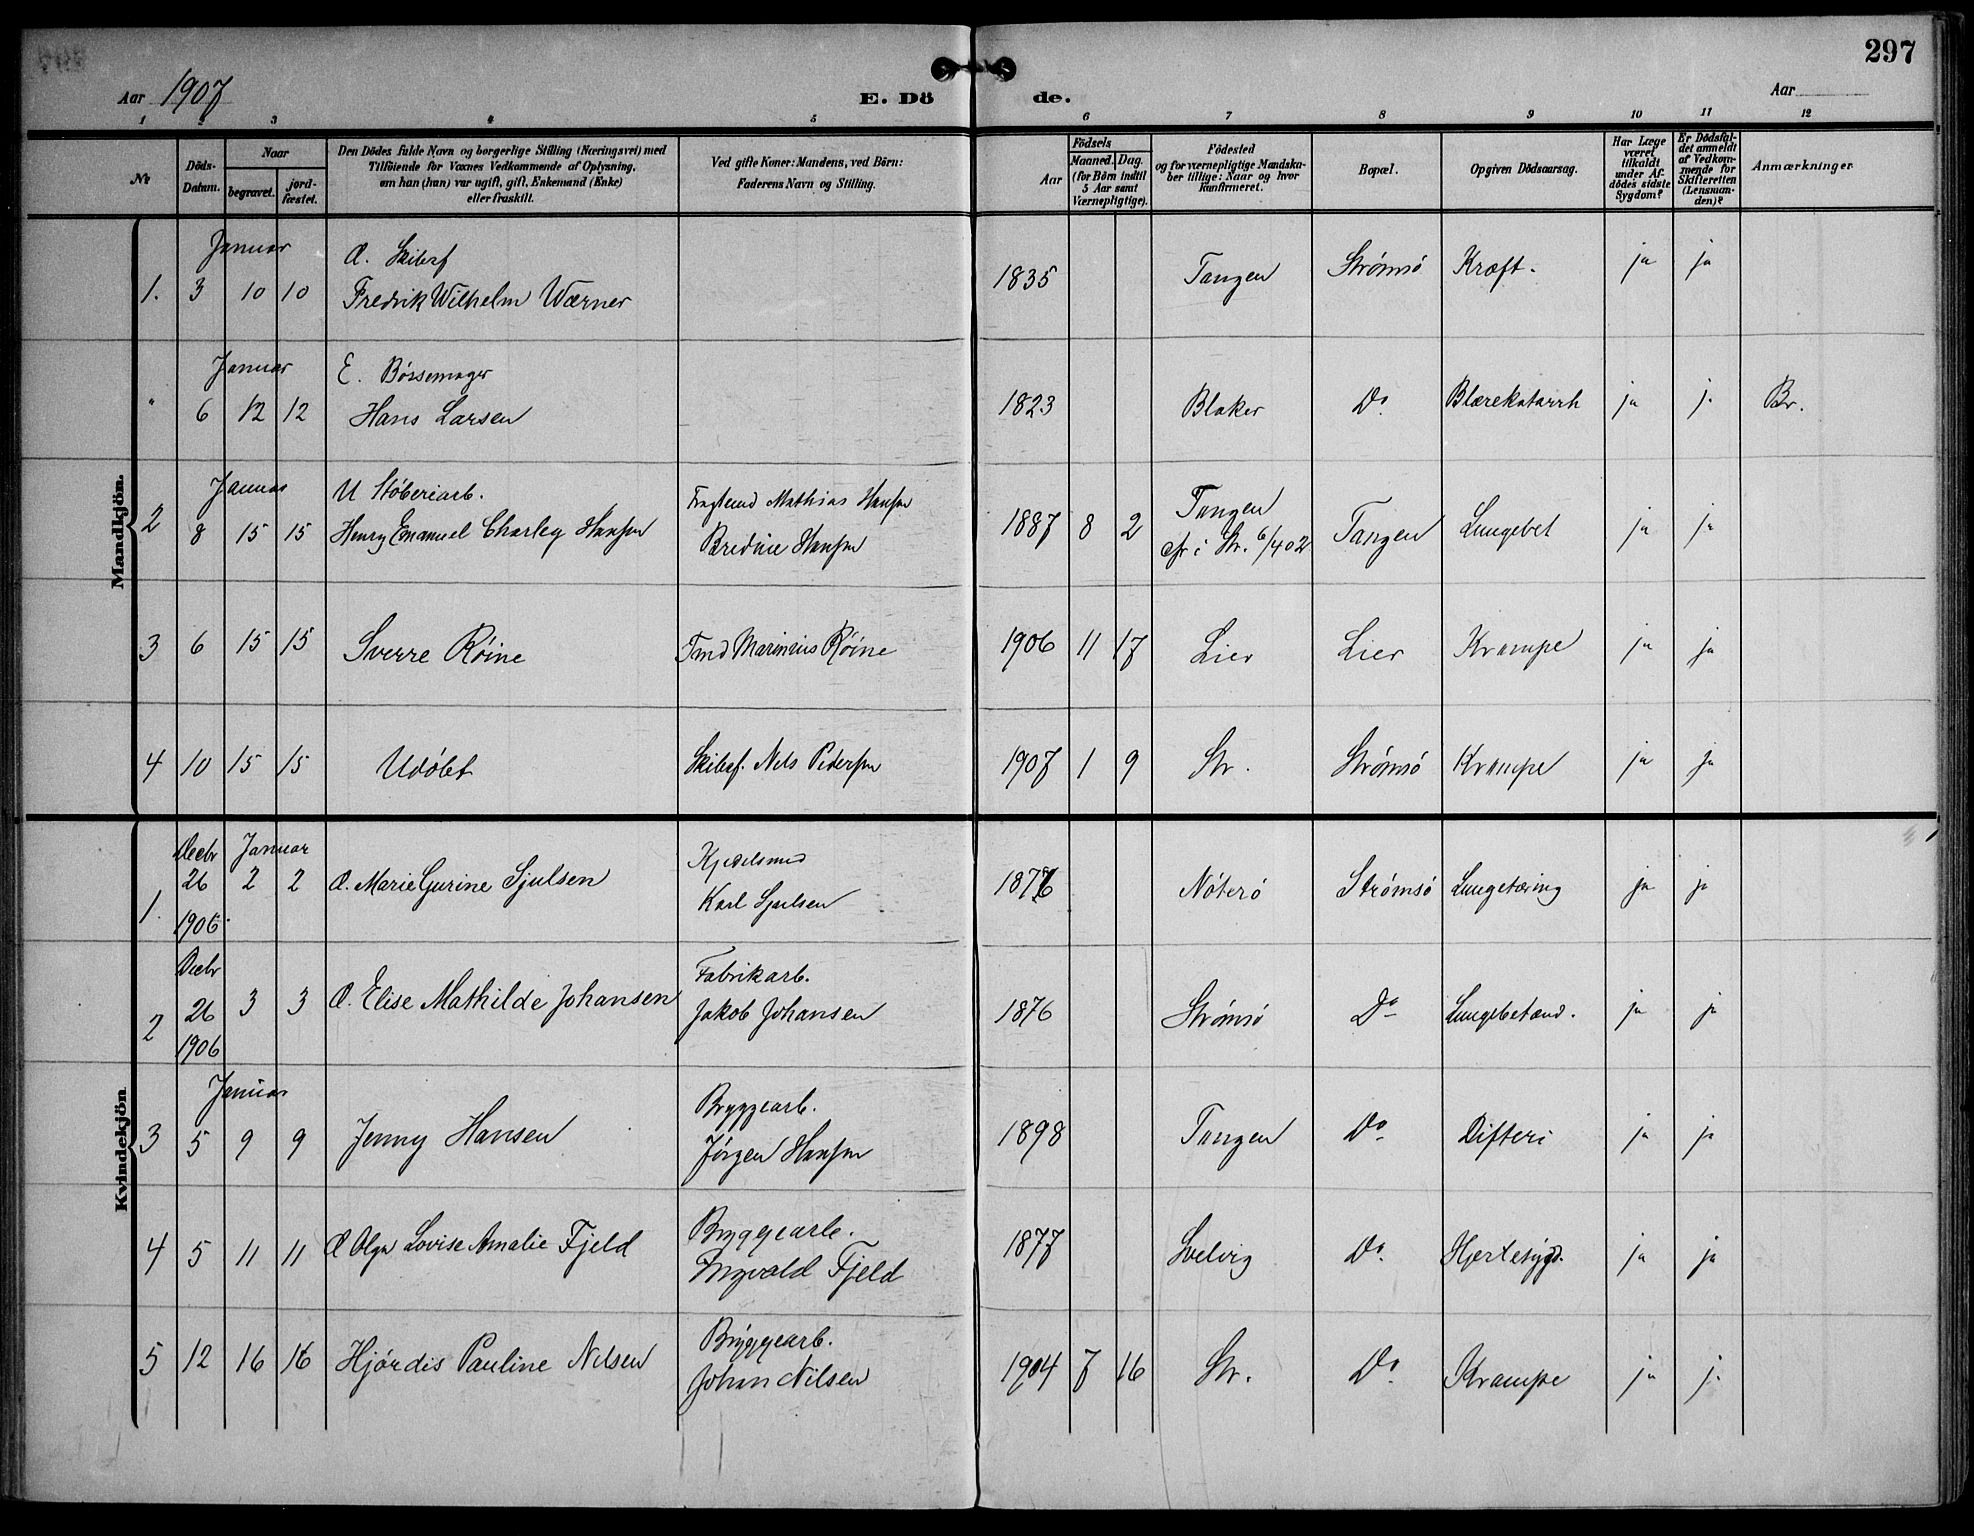 297
Aar 1907
E. Dö de.
Aar
1 2 3 4 5 6 7 8 9 10 11 12
Nr
Döds-Datum.
Naar
begravet.
jord-fæstet.
Den Dödes fulde Navn og borgerlige Stilling (Næringsvei) med
Tilföiende for Voxnes Vedkommende af Oplysning,
om han (hun) var ugift, gift, Enkemand (Enke)
eller fraskilt.
Ved gifte Koner: Mandens, ved Börn:
Faderens Navn og Stilling.
Födsels
Aar
Maaned. Dag.
(for Börn indtil
5 Aar samt
Værnepligtige).
Födested
og for værnepligtige Mandska-
ber tillige: Naar og hvor
konfirmeret.
Bopæl.
Opgiven Dödsaarsag.
Har Læge
været
tilkaldt
under Af-
dödes sidste
Sygdom?
Er Dödsfal-
det anmeldt
af Vedkom-
mende for
Skifteretten
(Lensman-
den)?
Anmærkninger
Mandkjön.
Januar
1. 3 10 10 Skibsf
Fredrik Wilhelm Wærner 1835 Tangen Strømsø Kræft. ja ja
Januar
" 6 12 12 E. Bössemager
Hans Larsen 1823 Blaker Do Blærekatarrh ja j. Br.
Januar
2 8 15 15 U Stöberiarb.
Henry Emanuel Charley Hansen
Mathias Hansen
Bredine Hansen 1887 8 2 Tangen
i Str. 6/4 02 Tangen Lungebet ja ja
3 6 15 15 Sverre Röine Fmd Marinius Röine 1906 11 17 Lier Lier Krampe ja ja
4 10 15 15 Udöbt Skibsf. Nils Pedersen 1907 1 9 Str. Strømsø Krampe ja ja
Kvindekjön
Decbr Januar
1. 26 2 2 Marie Gurine Sjulsen
1906
Kjedelsmed
Karl Sjulsen 1876 Nöterö Strømsø Lungetæring ja ja
Decbr
2 26 3 3 Elise Mathilde Johansen
1906
Fabrikarb.
Jakob Johansen 1876 Strømsø Do Lungebetænd. ja ja
Januar
3 5 9 9 Jenny Hansen
Bryggearb.
Jörgen Hansen 1898 Tangen Do Difteri ja ja
4 5 11 11 Olga Lovise Amalie Fjeld
Bryggearb.
Ingvald Fjeld 1877 Svelvig Do Hjertesygd. ja ja
5 12 16 16 Hjördis Pauline Nilsen
Bryggearb.
Johan Nilsen 1904 7 16 Str. Do Krampe ja j.